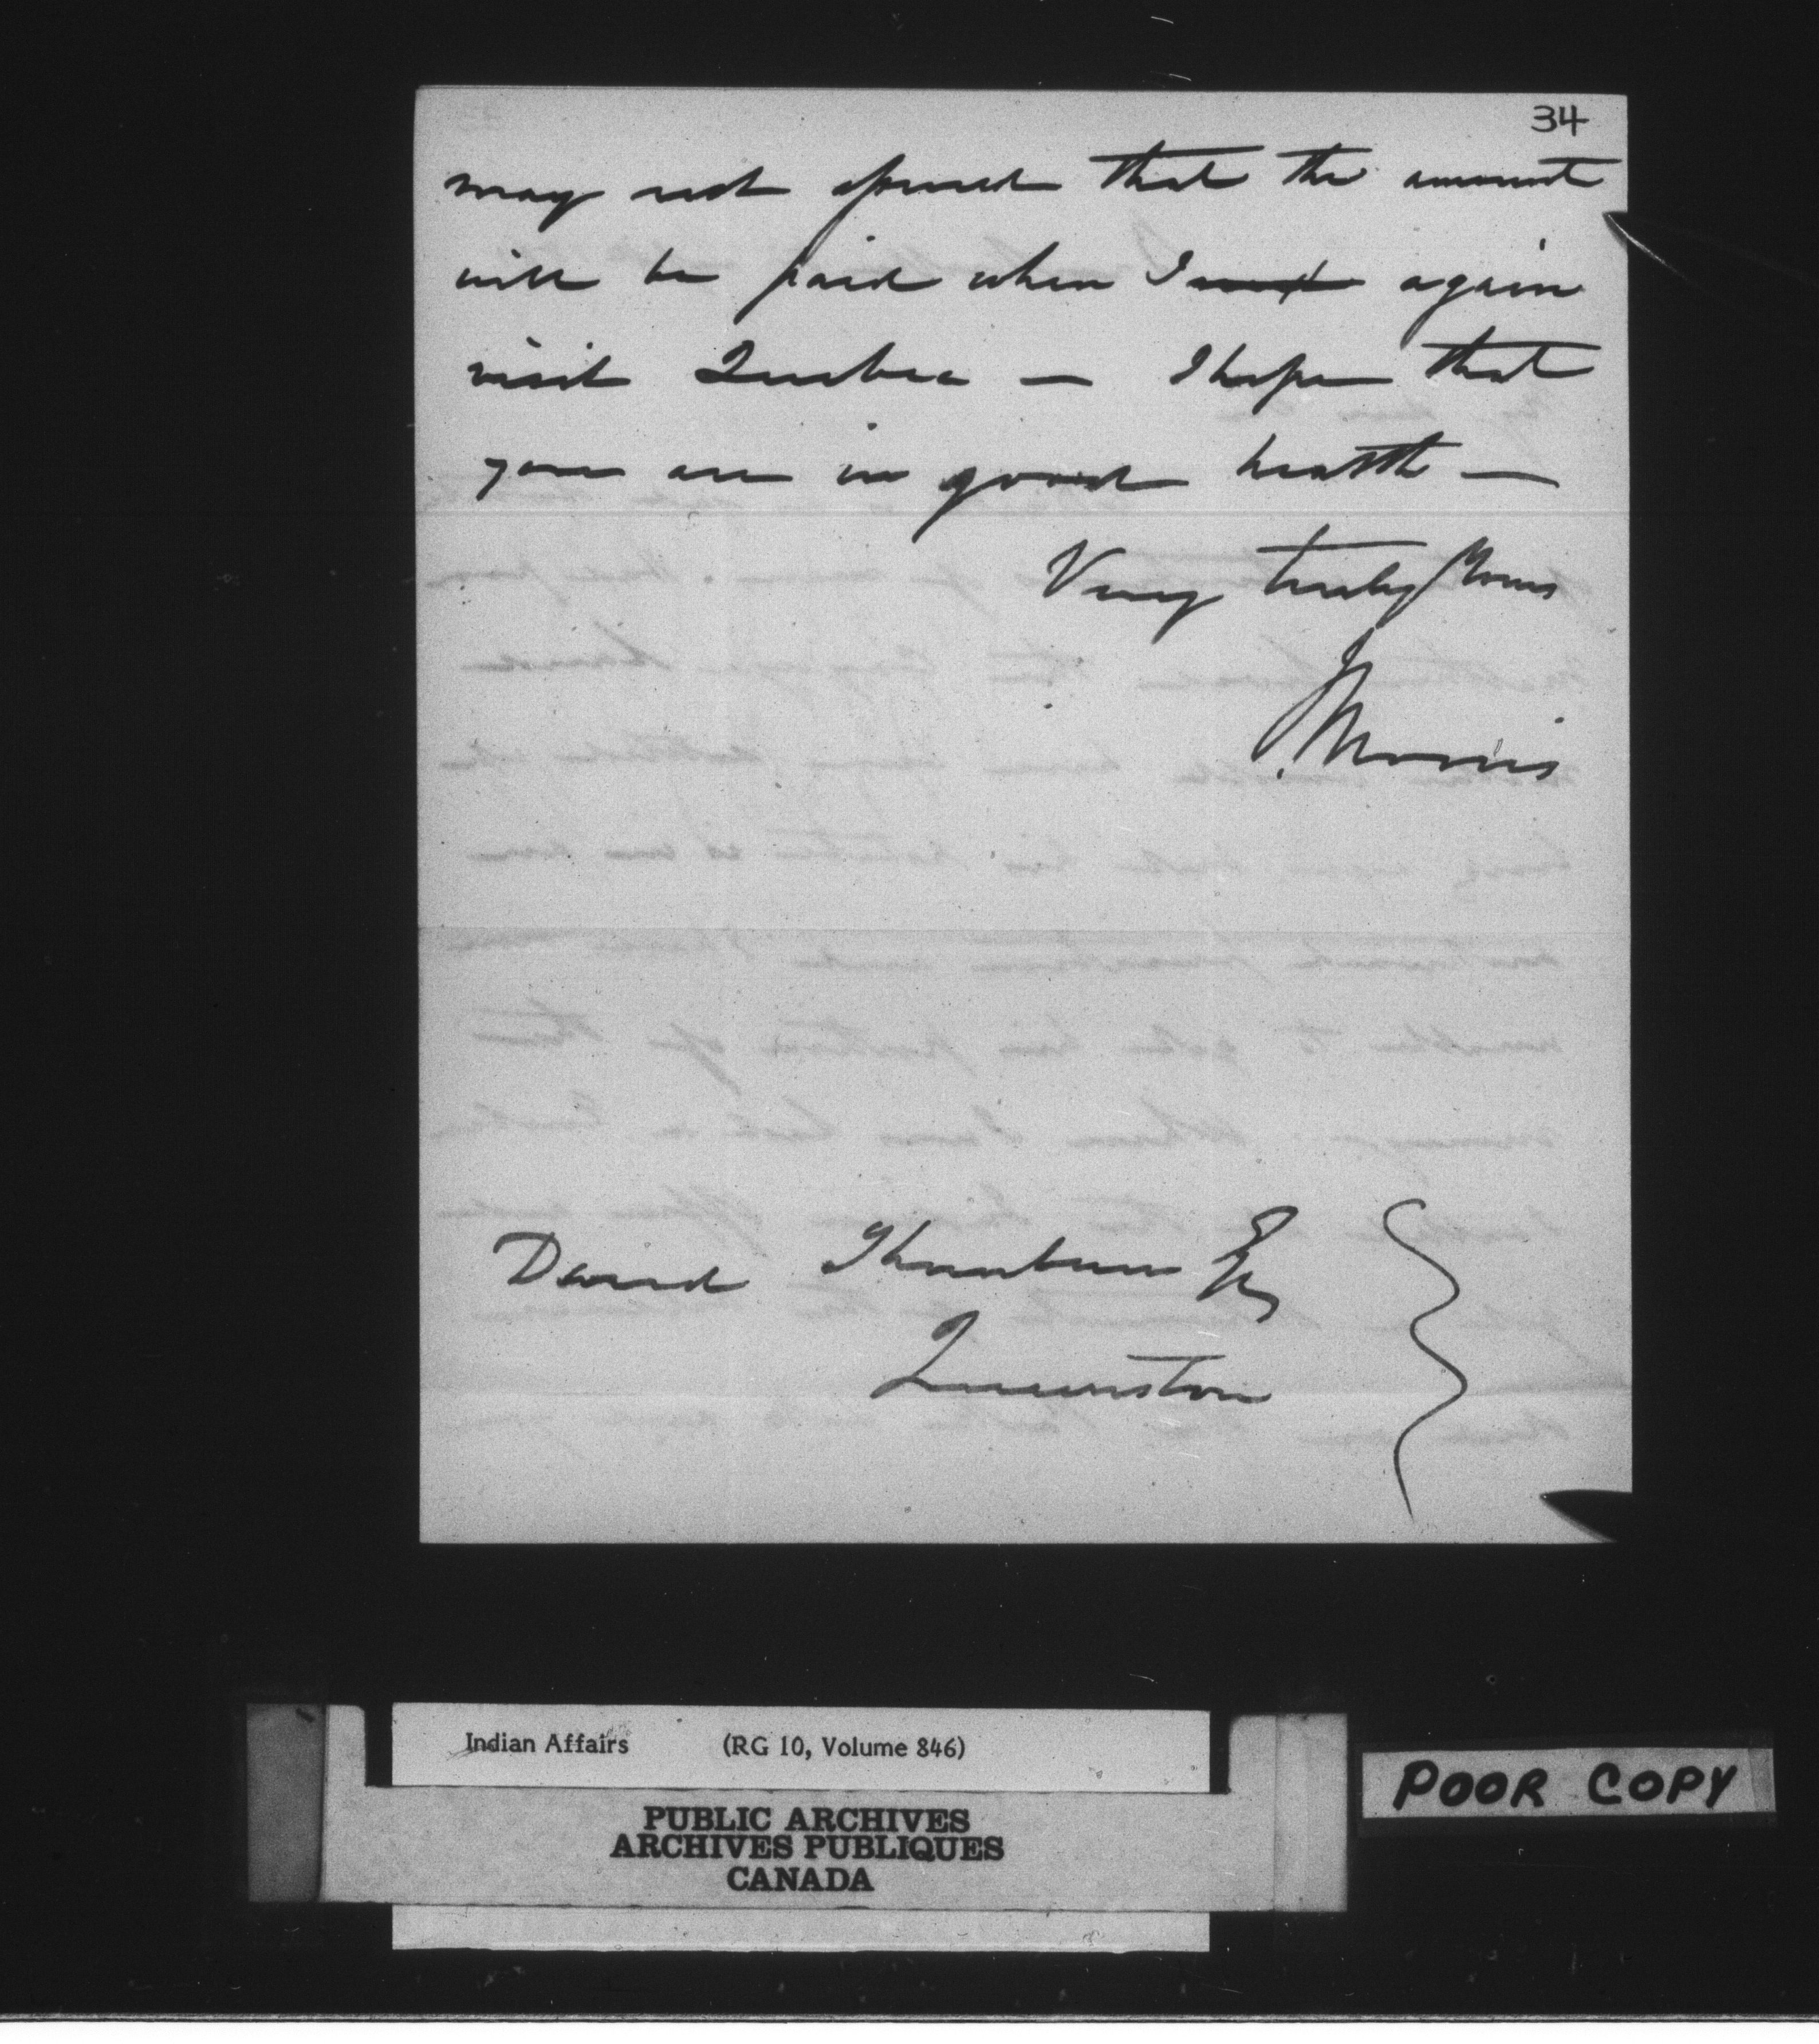 34
may not that the amount
will be paid when I next again
visit Quebec — I hope that
you are in good health —
Very truly Yours
J. Morris
David Thorburn Esq
Queenston
Indian Affairs (RG 10, Volume 846)
PUBLIC ARCHIVES
ARCHIVES PUBLIQUES
CANADA
POOR COPY